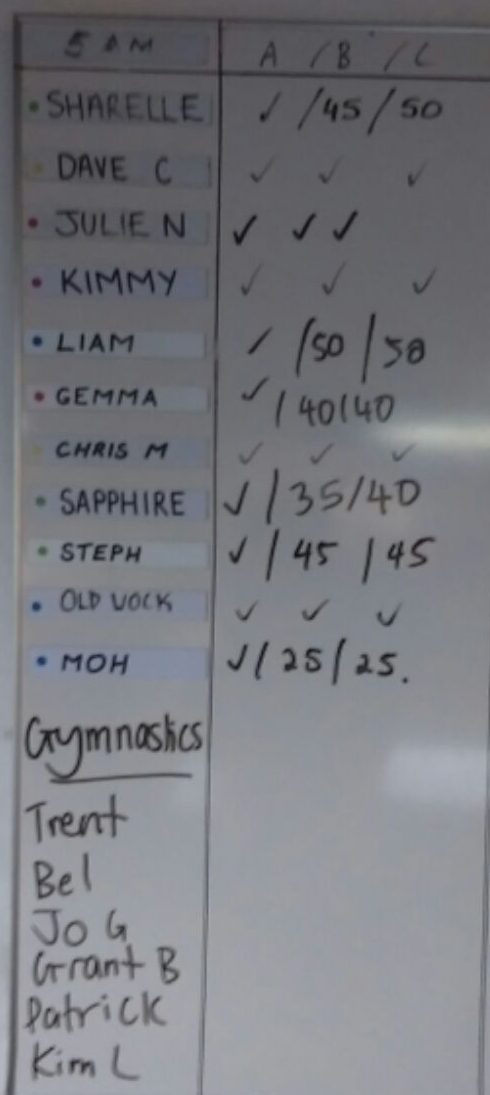 5 AM A / B / C
• SHARELLE ✓ / 45 / 50
• DAVE C ✓ ✓ ✓
• JULIE N ✓ ✓ ✓
• KIMMY ✓ ✓ ✓
• LIAM ✓ / 50 / 50
• GEMMA ✓ / 40 / 40
• CHRIS M ✓ ✓ ✓
• SAPPHIRE ✓ / 35 / 40
• STEPH ✓ / 45 / 45
• OLD VOCK ✓ ✓ ✓
• MOH ✓ / 25 / 25.
Gymnastics
Trent
Bel
Jo G
Grant B
Patrick
Kim L